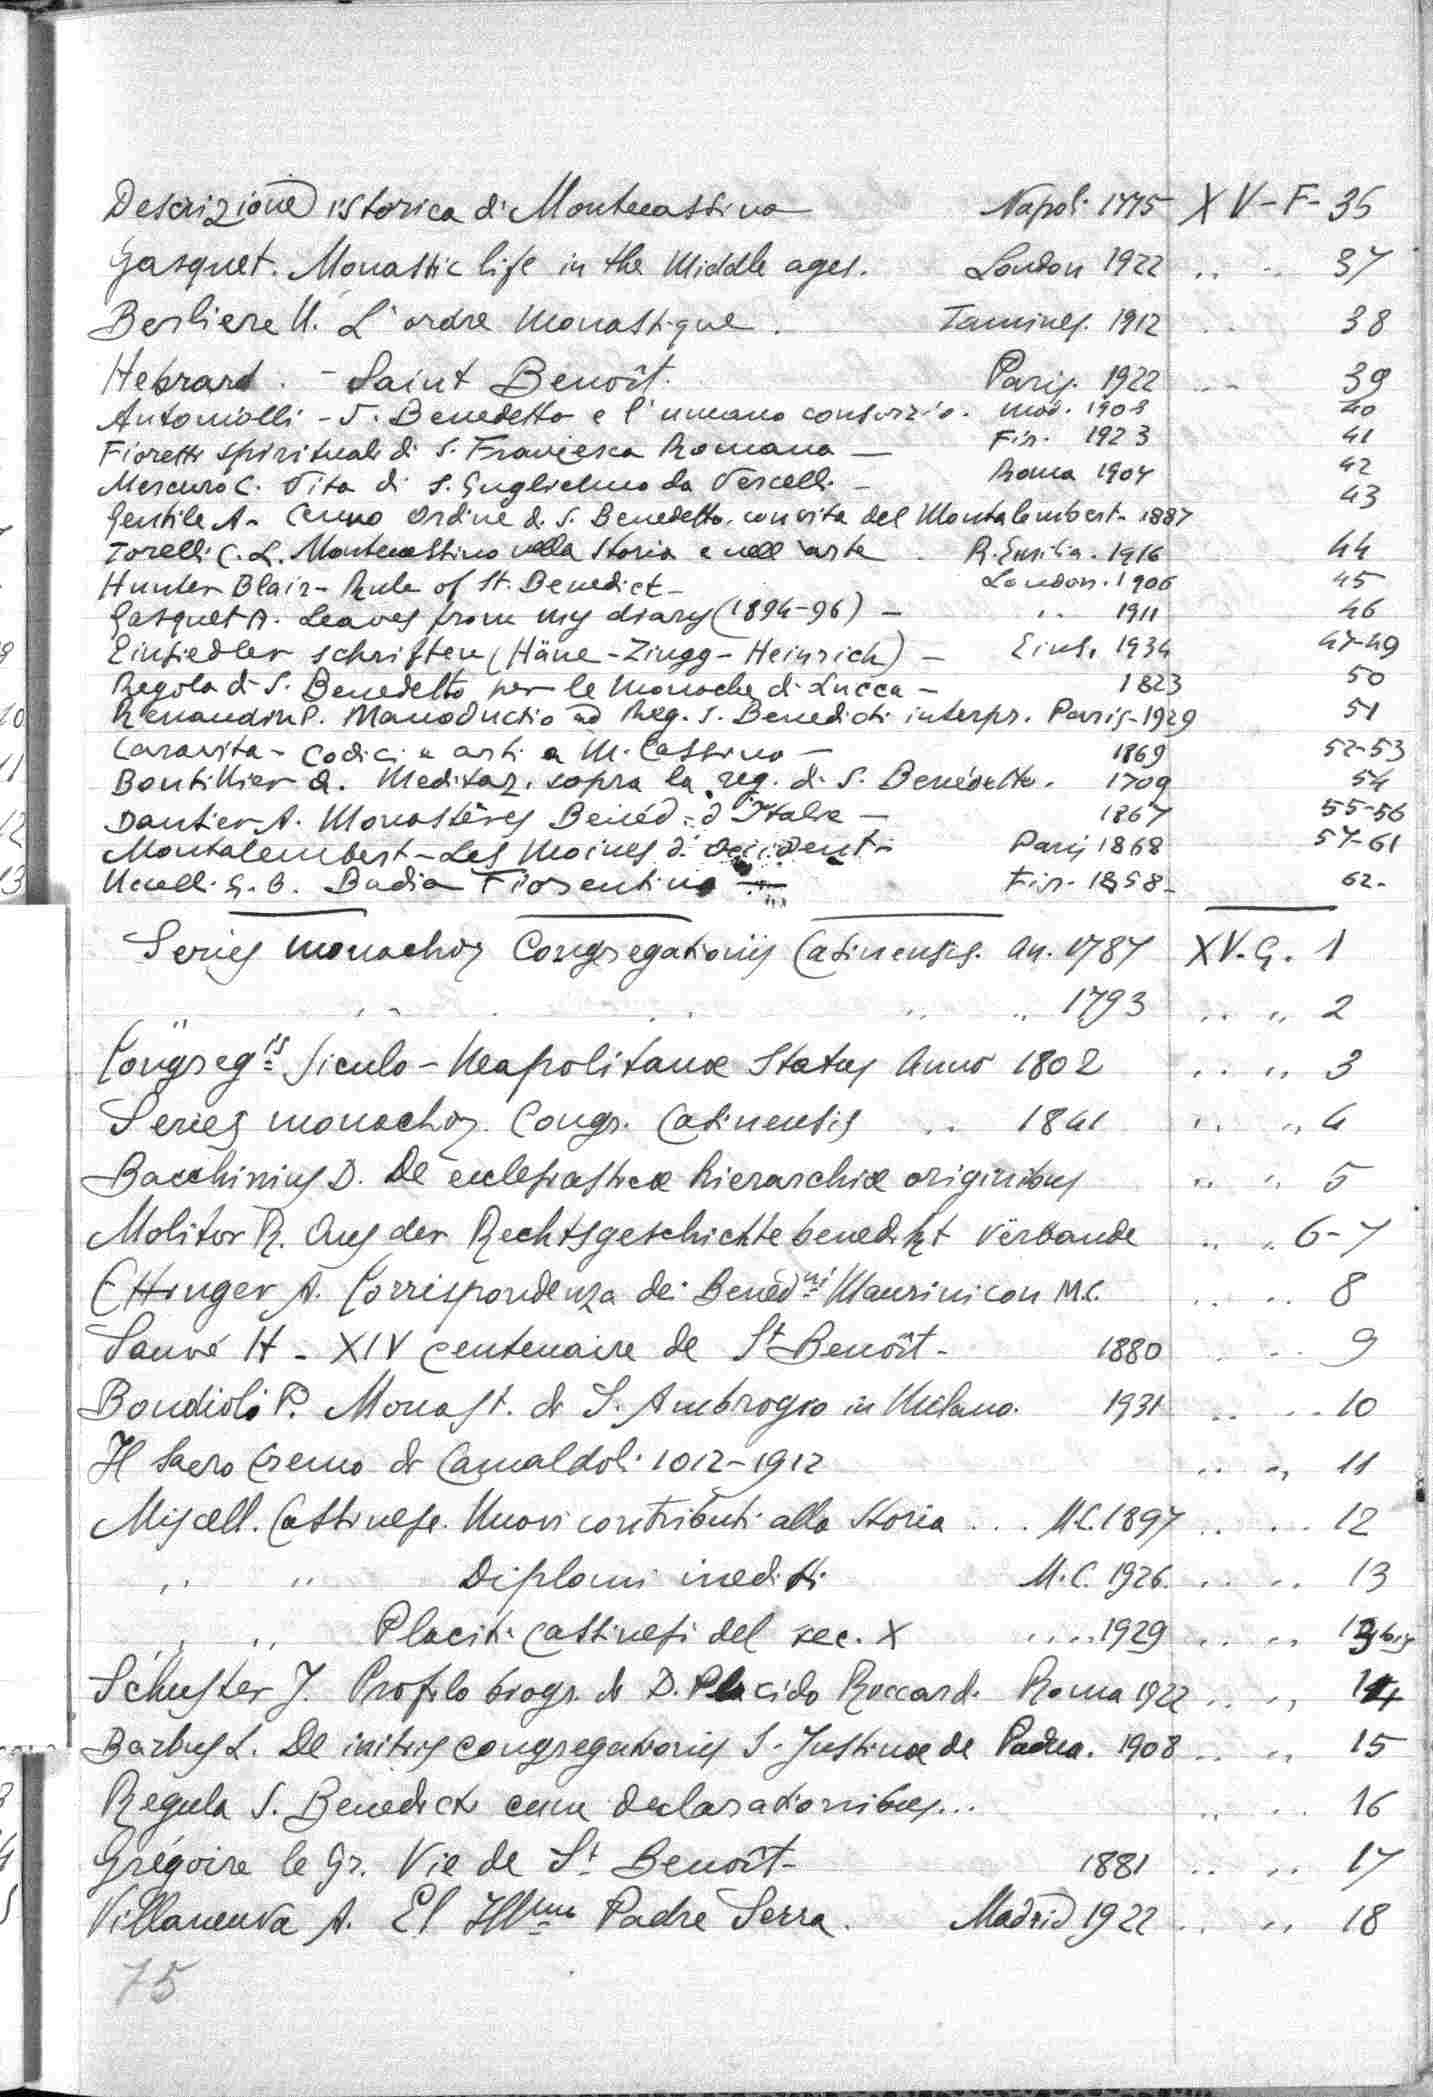 Descrizione istorica di Montecassino Napoli 1775 XV-F-36
Gasquet. Monastic life in the Middle ages. London 1922 .. .. 37
Berliere U. L'ordre monastique. Tamines. 1912 .. .. 38
Hebrard. - Saint Benoît. Paris. 1922 .. .. 39
Antoniolli - S. Benedetto e l'umano consorzio. Mod. 1908 40
Fioretti spirituali di S. Francesca Romana — Fir. 1923 41
Mercuro C. Vita di S. Guglielmo da Vercelli - Roma 1904 42
Gentile A- Cenno Ordine di S. Benedetto, con vita del Montalembert- 1887 43
Torelli C. L. Montecassino nella Storia e nell'arte. R. Emilia. 1916 44
Hunter Blair- Rule of St. Benedict - London. 1906 45
Gasquet A. Leaves from my diary (1894-96) - .. 1911 46
Einsiedler schriften (Häne-Zingg-Heinrich) - Eins. 1934 47-49
Regola di S. Benedetto per le Monache di Lucca - 1823 50
Renaudin P. Manoductio ad Reg. S. Benedicti interpr. Paris-1929 51
Caravita- Codici e arti a M. Cassino - 1869 52-53
Boutillier d. Meditaz. sopra la reg. di S. Benedetto. 1709 54
Dantier A. Monastères Bénéd. d'Italie - 1867 55-56
Montalembert- Les Moines d'Occident - Paris 1868 57-61
Uccelli G. B. Badia Fiorentina — Fir. 1858- 62-
Series monachoꝝ Congregationis Casinensis. an. 1787 XV. G. 1
" " " " " " 1793 .. .. 2
Congreg.is Siculo-Neapolitanæ Status Anno 1802 .. .. 3
Series monachoꝝ. Congr. Casinensis .. 1841 .. .. 4
Bacchinius D. De ecclesiasticæ hierarchiæ originibus .. .. 5
Molitor R. Aus der Rechtsgeschichte benedikt Verbande .. .. 6-7
Ettinger A. Corrispondenza dei Bened.ni Maurini con M.C. .. .. 8
Sauvé H - XIV centenaire de St Benoît - 1880 .. .. 9
Bondioli P. Monast. di S. Ambrogio in Milano. 1931 .. .. 10
Il Sacro Eremo di Camaldoli 1012-1912 .. .. 11
Miscell. Cassinese. Nuovi contributi alla Storia ... M.C. 1897 .. .. 12
" " Diplomi inediti M.C. 1926. .. .. 13
" " Placiti cassinesi del sec. X .... 1929 .. .. 13 bis
Schuster J. Profilo biogr. di D. Placido Riccardi. Roma 1922 .. .. 14
Barbus L. De initiis congregationis S. Justinæ de Padua. 1908 .. .. 15
Regula S. Benedicti cum declarationibus... .. .. 16
Grégoire le Gr. Vie de St Benoît - 1881 .. .. 17
Villanueva A. El Illmo Padre Serra. Madrid 1922 .. .. 18
75